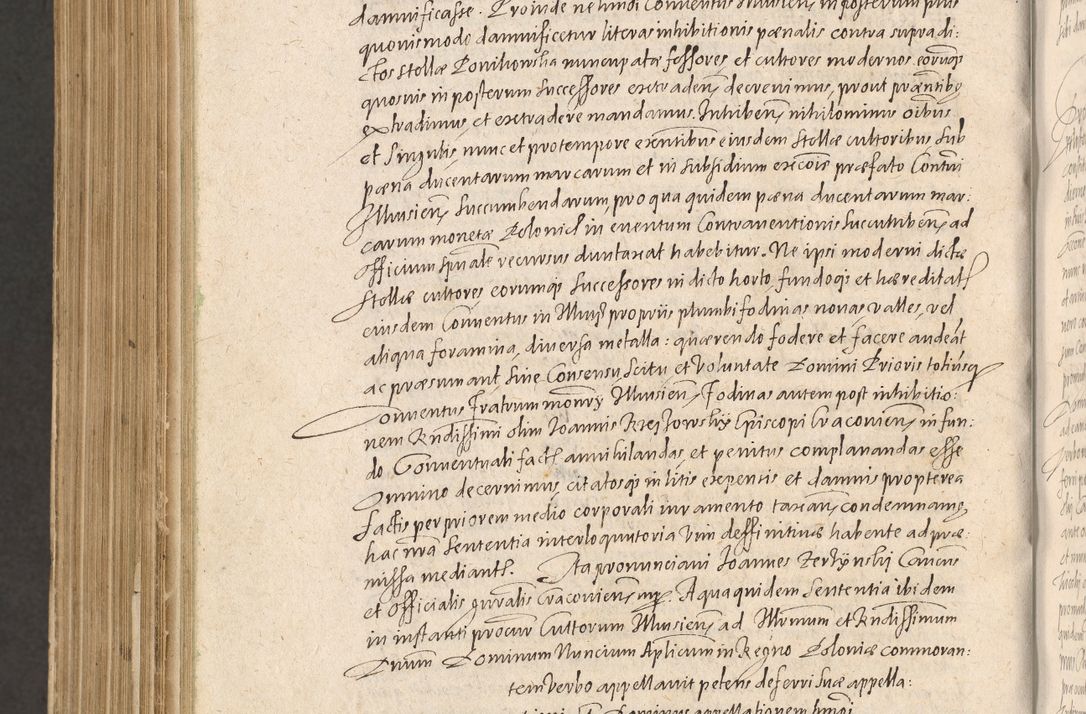 damnificasse. Proinde ne hmõi Conventus Illkusien in posterum plus
quovismodo damnificetur literas inhibitionis pænalis contra supradi:
ctos stellæ Ponikowska nuncupatæ fessores et cultores modernos eorumq̃
quosvis in posterum successores extradend decrevimus, prout præntibus
extradimus et extradere mandamus. Inhibend nihilominus oibus
et singulis nunc et pro tempore exentibus eiusdem stellæ cultoribus sub
pæna ducentarum marcarum et in subsidium exẽcois præfato Contui
Illkusien succumbendarum, pro qua quidem pæna ducentarum mar:
carum monetæ Polonical in eventum Contraventionis succumbend ad
officium spũale recursus duntaxat habebitur. Ne ipsi moderni dictæ
stellæ cultores eorumq̃ successores in dicto horto fundoq̃ et hæreditate
eiusdem Conventus in Illkusz propriis plumbifodinas novas valles, vel
aliqua foramina, diversa metalla: quærendo fodere et facere audeãt
ac præsumant, sine Consensu scitu et voluntate Domini Prioris totiusq̃
Conventus Fratrum monrÿ Illkusien, Fodinas autem post inhibitio:
nem Rndissimi olim Ioannis Rzeszowskÿ Episcopi Cracovien, in fun:
do Conventuali fact annihilandas, et penitus complanandas esse
omnino decernimus, citatosq̃ in litis expensis et damnis propterea
factis per priorem medio corporali iuramento taxan, condemnamus
hac nrã sententia interloquutoria vim deffinitivæ habente ad præ:
missa mediante. Ita pronunciavi Ioannes Zertÿnskÿ Cancus
et Officialis gnralis Cracovien, mp. A qua quidem sententia ibidem
in instanti procur Cultorum Illkusien, ad Illrmum et Rndissimum
Dnum Dominum Nuncium Aplicum in Regno Poloniæ commoran:
tem verbo appellavit petens deferri suæ appella: